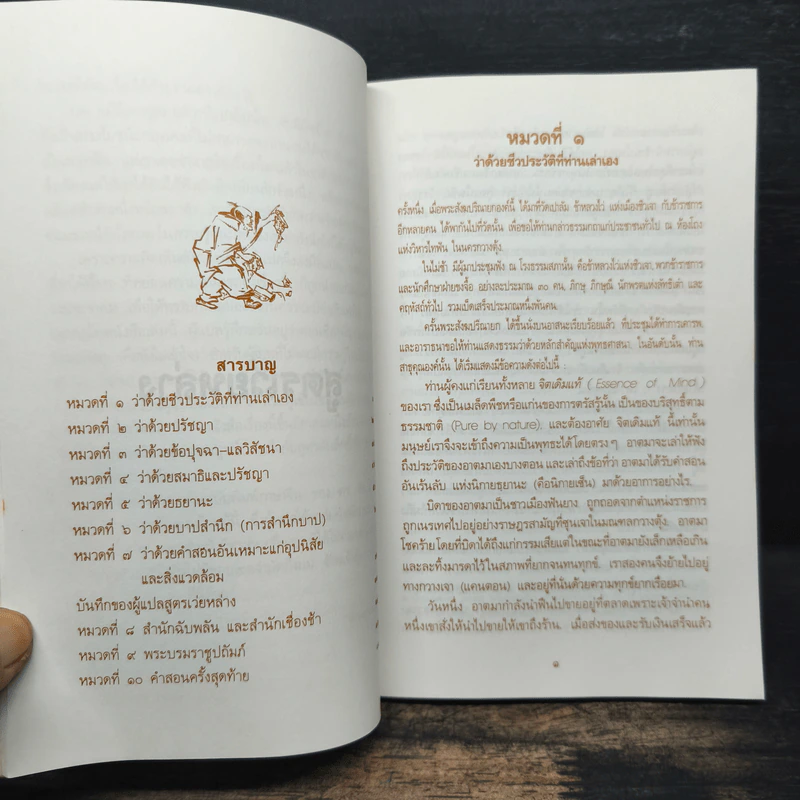 สารบาญ
หมวดที่ ๑ ว่าด้วยชีวประวัติที่ท่านเล่าเอง
หมวดที่ ๒ ว่าด้วยปรัชญา
หมวดที่ ๓ ว่าด้วยข้อปุจฉา–แลวิสัชนา
หมวดที่ ๔ ว่าด้วยสมาธิและปรัชญา
หมวดที่ ๕ ว่าด้วยธยานะ
หมวดที่ ๖ ว่าด้วยบาปสำนึก (การสำนึกบาป)
หมวดที่ ๗ ว่าด้วยคำสอนอันเหมาะแก่อุปนิสัย
และสิ่งแวดล้อม
บันทึกของผู้แปลสูตรเว่ยหล่าง
หมวดที่ ๘ สำนักฉับพลัน และสำนักเชื่องช้า
หมวดที่ ๙ พระบรมราชูปถัมภ์
หมวดที่ ๑๐ คำสอนครั้งสุดท้าย
หมวดที่ ๑
ว่าด้วยชีวประวัติที่ท่านเล่าเอง
ครั้งหนึ่ง เมื่อพระสังฆปริณายกองค์นี้ ได้มาที่วัดเปาลัม ข้าหลวงไว่ แห่งเมืองชิวเจา กับข้าราชการ
อีกหลายคน ได้พากันไปที่วัดนั้น เพื่อขอให้ท่านกล่าวธรรมกถาแก่ประชาชนทั่วไป ณ ห้องโถง
แห่งวิหารไทฟัน ในนครกวางตุ้ง
ในไม่ช้า มีผู้มาประชุมฟัง ณ โรงธรรมสภานั้น คือข้าหลวงไว่แห่งชิวเจา, พวกข้าราชการ
และนักศึกษาฝ่ายขงจื้อ อย่างละประมาณ ๓๐ คน, ภิกษุ ภิกษุณี นักพรตแห่งลัทธิเต๋า และ
คฤหัสถ์ทั่วไป รวมเบ็ดเสร็จประมาณหนึ่งพันคน.
ครั้นพระสังฆปริณายก ได้ขึ้นนั่งบนอาสนะเรียบร้อยแล้ว ที่ประชุมได้ทำการเคารพ,
และอาราธนาขอให้ท่านแสดงธรรมว่าด้วยหลักสำคัญแห่งพุทธศาสนา. ในอันดับนั้น ท่าน
สาธุคุณองค์นั้น ได้เริ่มแสดงมีข้อความดังต่อไปนี้ :
ท่านผู้คงแก่เรียนทั้งหลาย จิตเดิมแท้ ( Essence of Mind )
ของเรา ซึ่งเป็นเมล็ดพืชหรือแก่นของการตรัสรู้นั้น เป็นของบริสุทธิ์ตาม
ธรรมชาติ (Pure by nature), และต้องอาศัย จิตเดิมแท้ นี้เท่านั้น
มนุษย์เราจึงจะเข้าถึงความเป็นพุทธะได้โดยตรง ๆ อาตมาจะเล่าให้ฟัง
ถึงประวัติของอาตมาเองบางตอน และเล่าถึงข้อที่ว่า อาตมาได้รับคำสอน
อันเร้นลับ แห่งนิกายธยานะ (คือนิกายเซ็น) มาด้วยอาการอย่างไร.
บิดาของอาตมาเป็นชาวเมืองฟันยาง ถูกถอดจากตำแหน่งราชการ
ถูกเนรเทศไปอยู่อย่างราษฎรสามัญที่ซุนเจาในมณฑลกวางตุ้ง. อาตมา
โชคร้าย โดยที่บิดาได้ถึงแก่กรรมเสียแต่ในขณะที่อาตมายังเล็กเหลือเกิน
และละทิ้งมารดาไว้ในสภาพที่ยากจนทนทุกข์. เราสองคนจึงย้ายไปอยู่
ทางกวางเจา (แคนตอน) และอยู่ที่นั่นด้วยความทุกข์ยากเรื่อยมา.
วันหนึ่ง อาตมากำลังนำฟืนไปขายอยู่ที่ตลาดเพราะเจ้าจำนำคน
หนึ่งเขาสั่งให้นำไปขายให้เขาถึงร้าน. เมื่อส่งของและรับเงินเสร็จแล้ว
๑